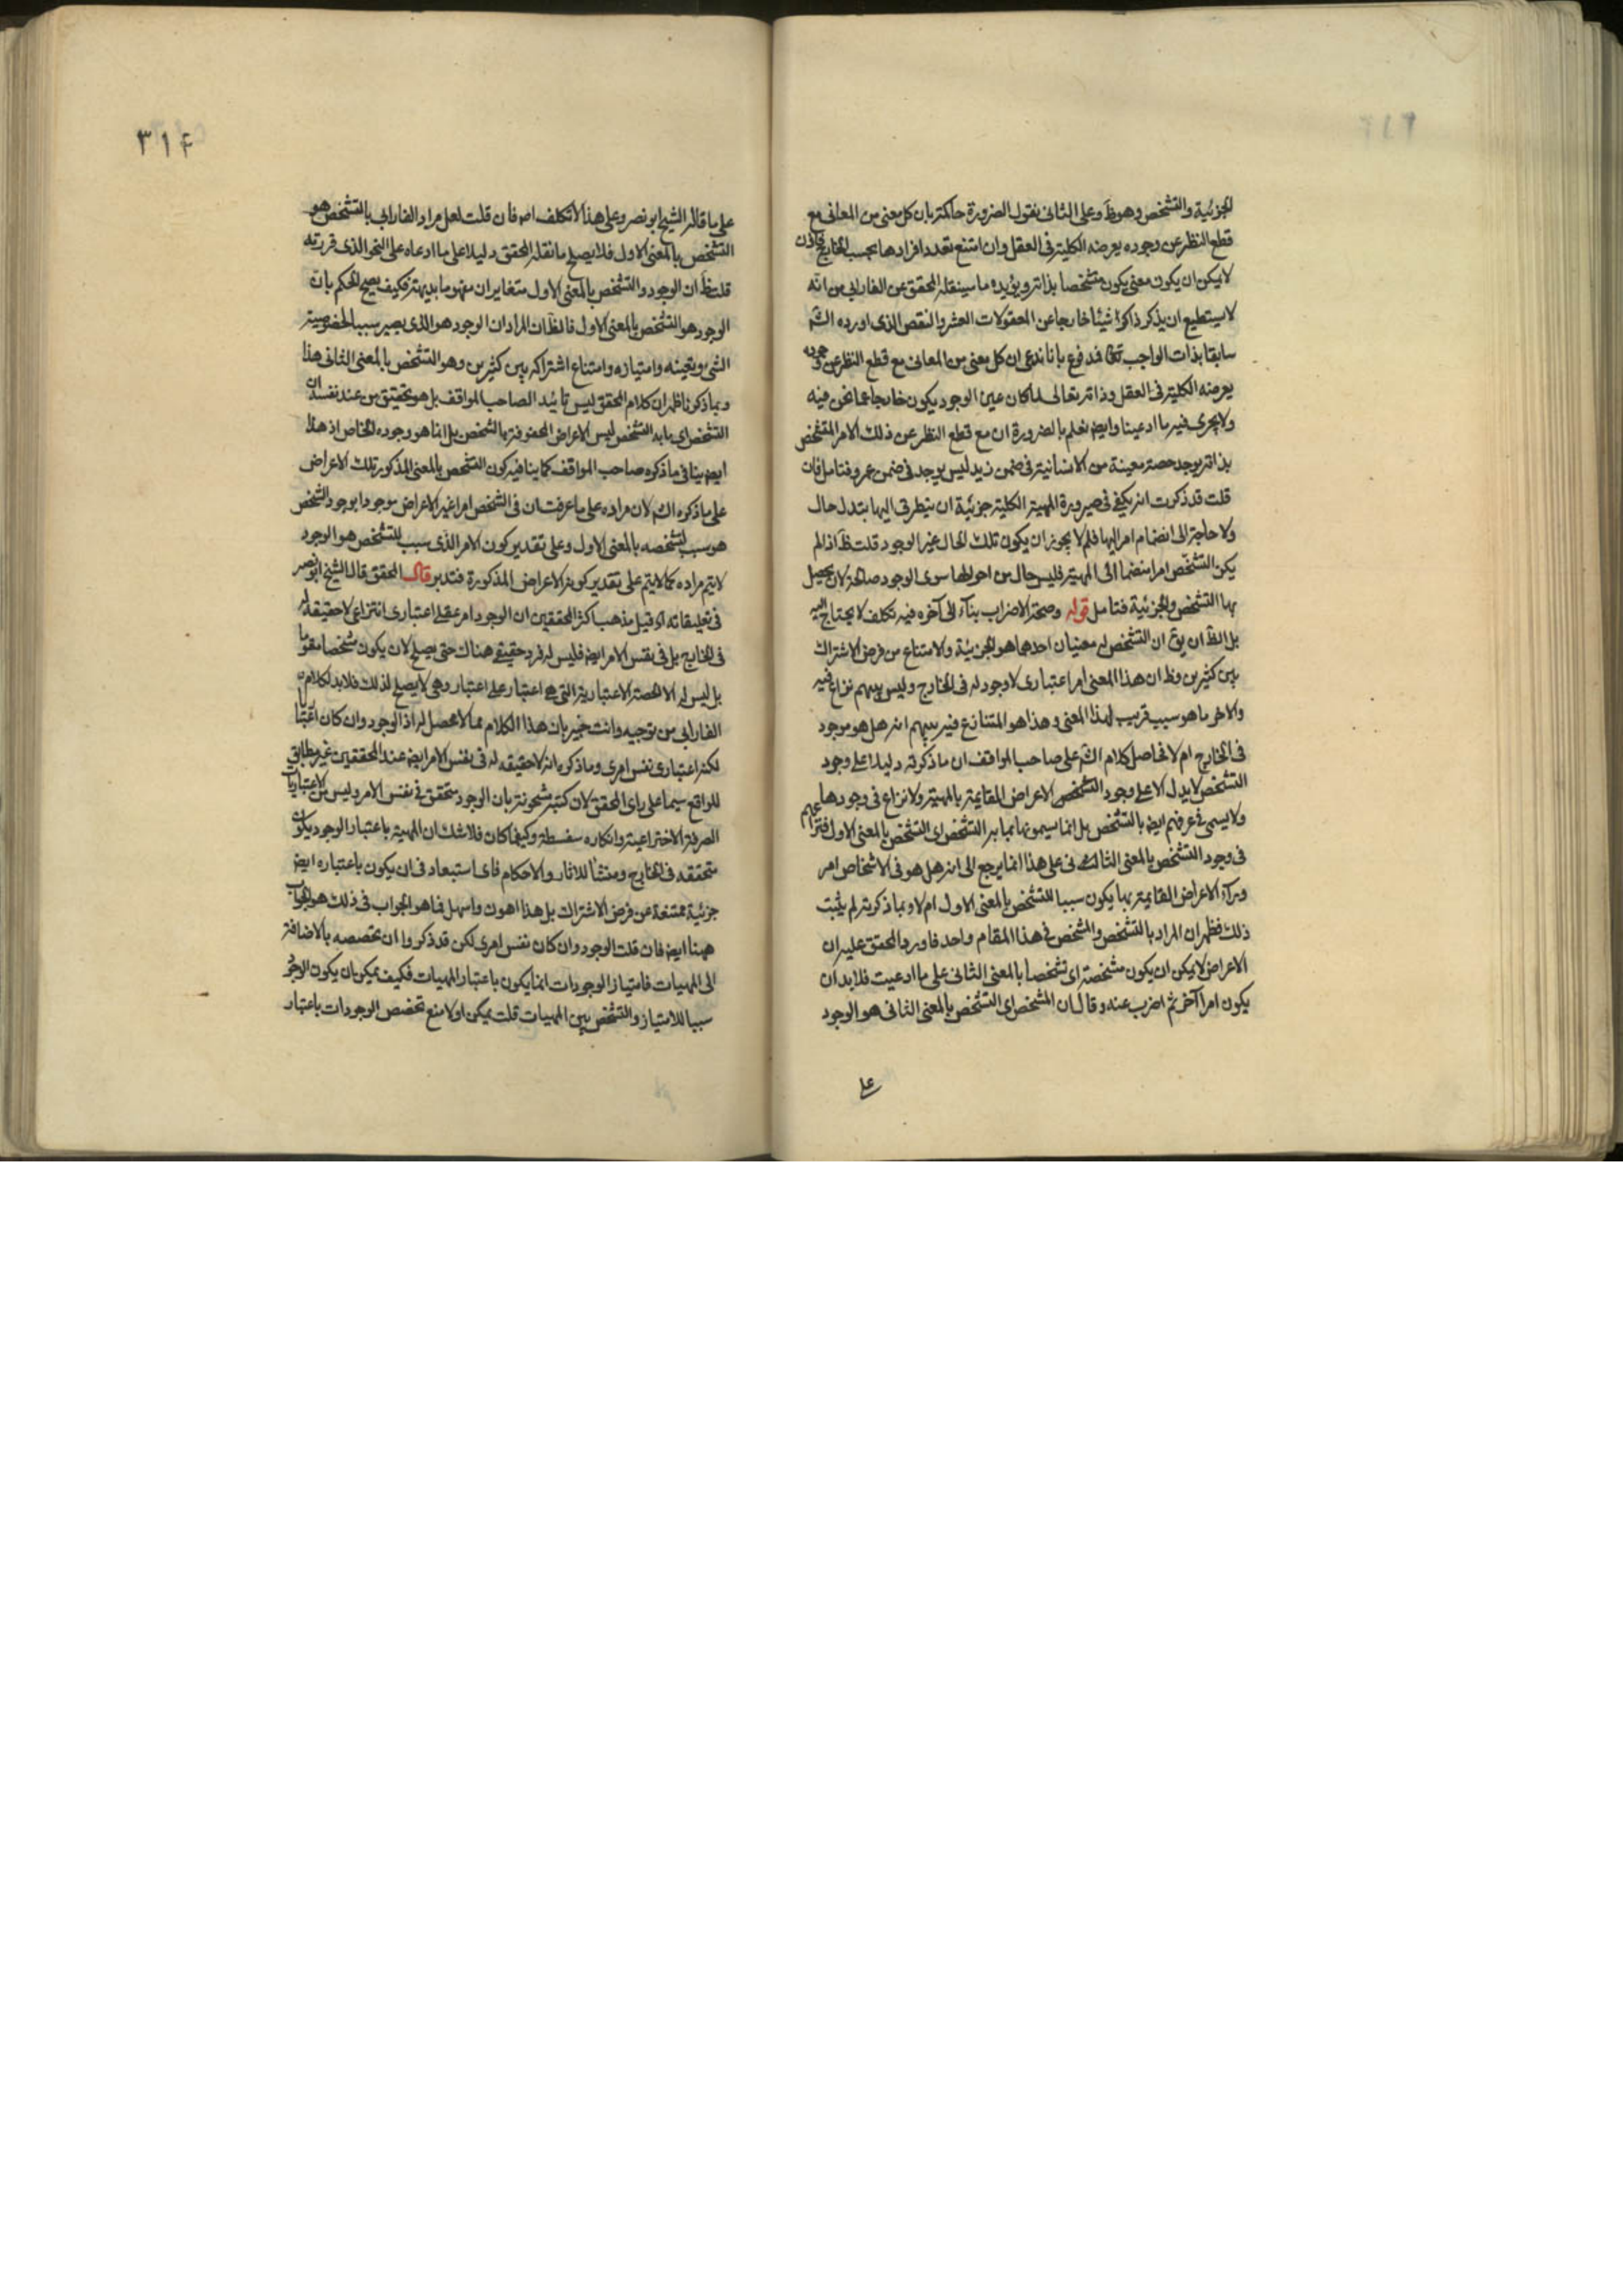 الجزئية والتشخص وهو ظ وعلى الثانى نقول الضرورة حاكمة بان كل معنى من المعانى مع
قطع النظر عن وجوده يعرضه الكلية فى العقل وان امتنع تعدد افرادها بحسب الخارج فاذن
لا يمكن ان يكون معنى يكون متشخصا بذاته ويؤيده ما سينقله المحقق عن الفارابى من انه
لا يستطيع ان يذكر ذاكر شيئا خارجا عن المقولات العشر والنقص الذى اورده الش
سابقا بذات الواجب تعالى فمدفوع بانا ندعى ان كل معنى من المعانى مع قطع النظر عن وجوده
يعرضه الكلية فى العقل وذاته تعالى لما كان عين الوجود يكون خارجا عما نحن فيه
ولا يجرى فيه ما ادعينا وايض نعلم بالضرورة ان مع قطع النظر عن ذلك الامر المتشخص
بذاته يوجد حصة معينة من الانسانية فى ضمن زيد ليس يوجد فى ضمن عمرو فتامل فان
قلت قد ذكرت انه يكفى فى صيرورة المهية الكلية جزئية ان يتطرق اليها تبدل حال
ولا حاجة الى انضمام امر اليها فلم لا يجوز ان يكون تلك الحال غير الوجود قلت ظ اذ لم
يكن التشخص امرا منضما الى المهية فليس حال من احوالها سوى الوجود صالحة لان يحصل
بها التشخص والجزئية فتامل قوله وصحة الاضراب بناء الى آخره فيه تكلف لا يحتاج اليه
بل الظ ان يق ان التشخص له معنيان احدهما هو الجزئية والامتناع من فرض الاشتراك
بين كثيرين وظ ان هذا المعنى امر اعتبارى لا وجود له فى الخارج وليس بينهم نزاع فيه
والاخر ما هو سبب قريب لهذا المعنى وهذا هو المتنازع فيه بينهم انه هل هو موجود
فى الخارج ام لا فحاصل كلام الش على صاحب المواقف ان ما ذكرته دليلا على وجود
التشخص لا يدل الا على وجود التشخص الاعراض القايمة بالمهية ولا نزاع فى وجودها
ولا يسمى فى عرفهم ايض بالتشخص بل انما يسمونها بما به التشخص اى التشخص بالمعنى الاول فنزاعهم
فى وجود التشخص بالمعنى الثالث فى على هذا انما يرجع الى انه هل هو فى الاشخاص امر
وراء الاعراض القايمة بها يكون سببا للتشخص بالمعنى الاول ام لا وبما ذكرته لم يثبت
ذلك فظهر ان المراد بالتشخص والمشخص فى هذا المقام واحد فاورد المحقق عليه ان
الاعراض لا يمكن ان يكون مشخصة اى تشخصا بالمعنى الثانى على ما ادعيت فلا بد ان
يكون امرا آخر ثم اضرب عنه وقال ان المشخص اى التشخص بالمعنى الثانى هو الوجود
على
٣١۴
على ما قاله الشيخ ابو نصر وعلى هذا لا تكلف اص فان قلت لعل مراد الفارابى بالتشخص هو
التشخص بالمعنى الاول فلا يصلح ما نقله المحقق دليلا على ما ادعاه على النحو الذى قررته
قلت ظ ان الوجود والتشخص بالمعنى الاول متغايران مفهوما بديهة فكيف يصح الحكم بان
الوجود هو التشخص بالمعنى الاول فالظ ان المراد ان الوجود هو الذى يصير سببا لخصوصية
الشىء وتعينه وامتيازه وامتناع اشتراكه بين كثيرين وهو التشخص بالمعنى الثانى هذا
وبما ذكرنا ظهر ان كلام المحقق ليس تائيد الصاحب المواقف بل هو تحقيق من عند نفسه ان
التشخص اى ما به التشخص ليس الاعراض المحفوفة بها الشخص بل انما هو وجوده الخاص اذ هذا
ايض ينافى ما ذكره صاحب المواقف كما ينافيه كون التشخص بالمعنى المذكور تلك الاعراض
على ما ذكره الش لان مراده على ما عرفت ان فى الشخص امرا غير الاعراض موجودا بوجود الشخص
هو سبب لتشخصه بالمعنى الاول وعلى تقدير كون الامر الذى سبب للتشخص هو الوجود
لا يتم مراده كما لا يتم على تقدير كونه الاعراض المذكورة فتدبر قال المحقق قال الشيخ ابو نصر
فى تعليقاته اه قيل مذهب اكثر المحققين ان الوجود امر عقلى اعتبارى انتزاعى لا حقيقة له
فى الخارج بل فى نفس الامر ايض فليس له فرد حقيقى هناك حتى يصلح لان يكون مشخصا مقوما
بل ليس له الا الحصة الاعتبارية التى هى اعتبار على اعتبار وهى لا يصلح لذلك فلا بد لكلام
الفارابى من توجيه وانت خبير بان هذا الكلام مما لا محصل له اذ الوجود وان كان اعتباريا
لكنه اعتبارى نفس امرى وما ذكره انه لا حقيقة له فى نفس الامر ايض عند المحققين غير مطابق
للواقع سيما على راى المحقق لان كتبه مشحونة بان الوجود متحقق فى نفس الامر وليس من الاعتباريات
الصرفة الاختراعية وانكاره سفسطة وكيفما كان فلا شك ان المهية باعتبار الوجود يكون
متحققة فى الخارج ومنشا للاثار والاحكام فاى استبعاد فى ان يكون باعتباره ايض
جزئية ممتنعة عن فرض الاشتراك بل هذا اهون واسهل فما هو الجواب فى ذلك هو الجواب
ههنا ايض فان قلت الوجود وان كان نفس امرى لكن قد ذكروا ان تخصصه بالاضافة
الى المهيات فامتياز الوجودات انما يكون باعتبار المهيات فكيف يمكن ان يكون الوجود
سببا للامتياز والتشخص بين المهيات قلت يمكن اولا منع تخصص الوجودات باعتبار